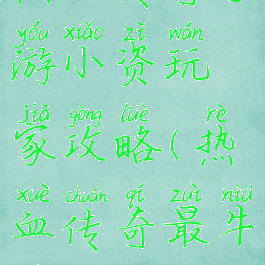 yóu xiǎo zī wán
游小资玩
jiā gōng lüè ( rè
家攻略(热
xuè chuán qí zuì niú
血传奇最牛